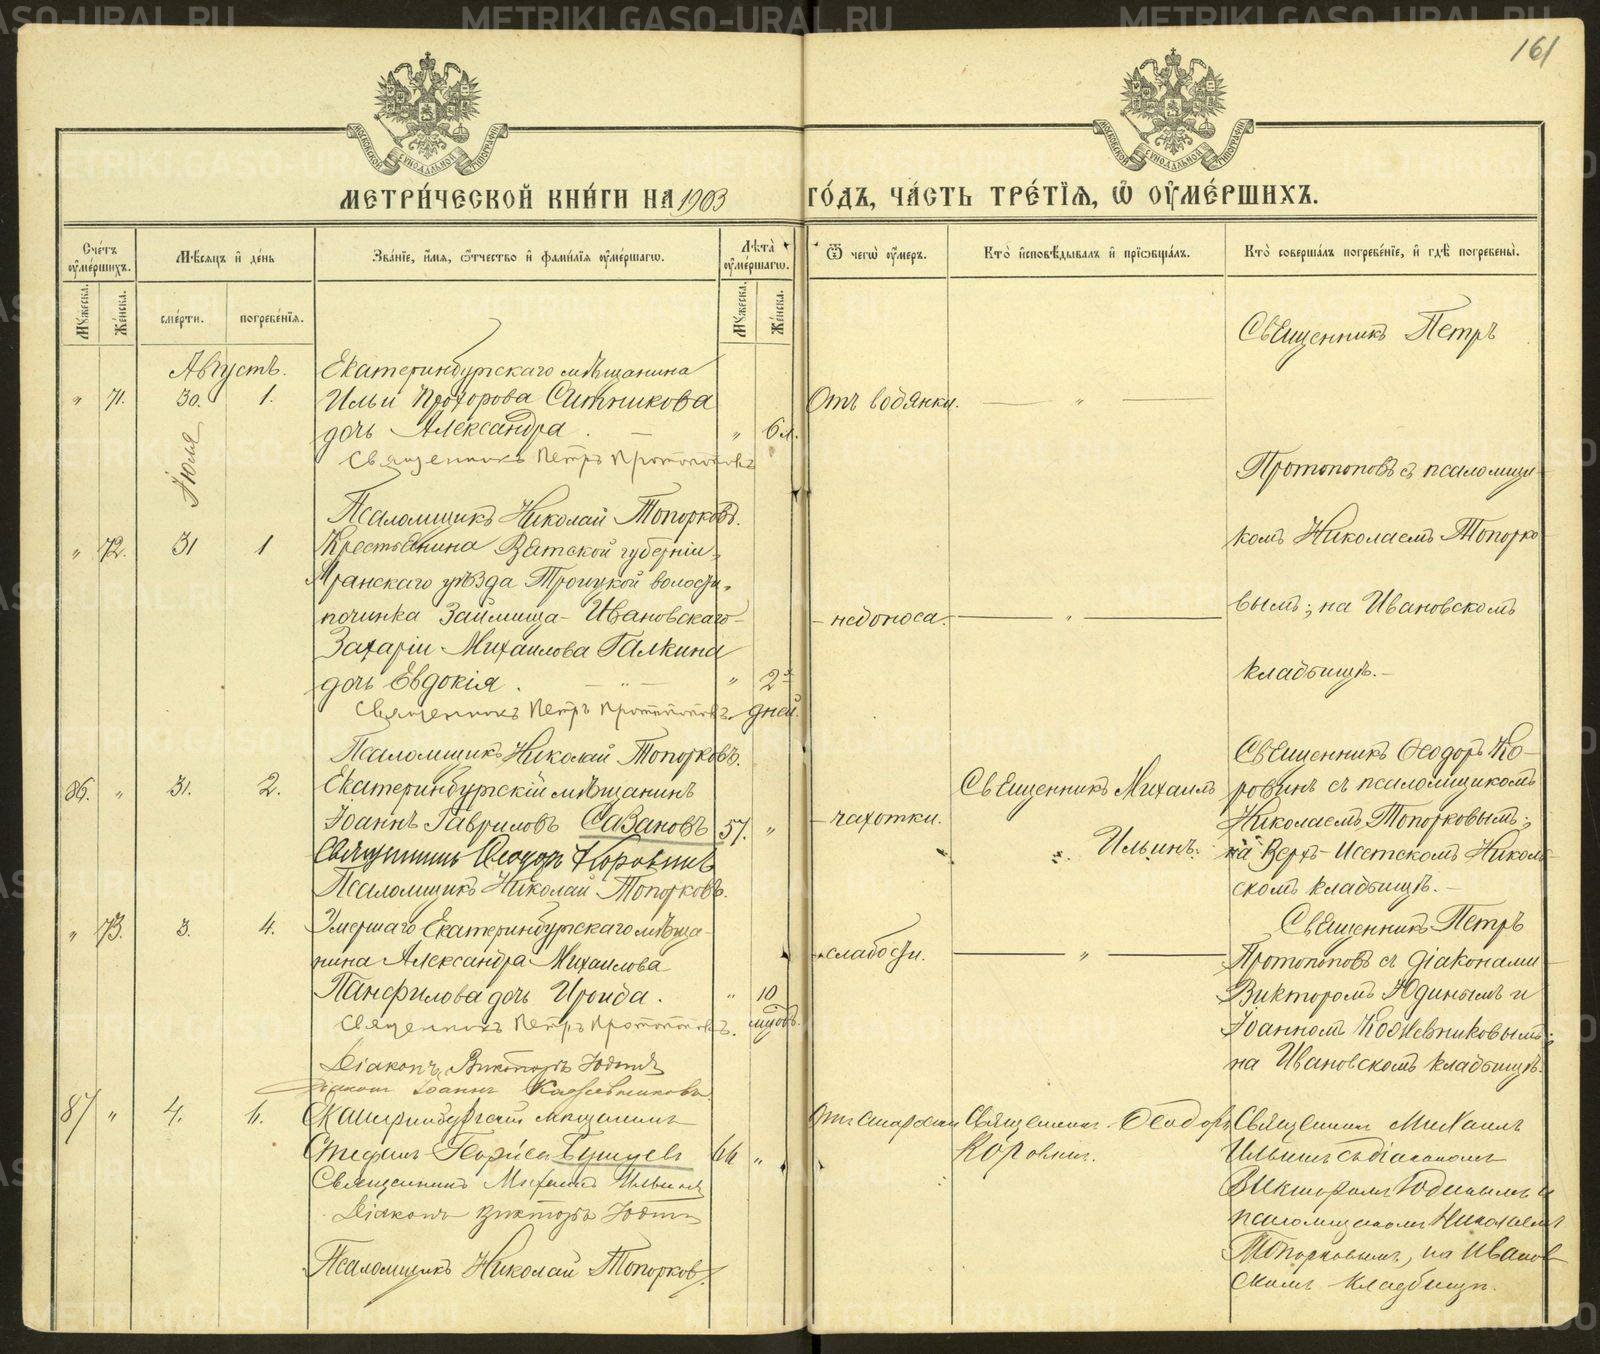 161
МОСКОВСКОЙ СѴНОДАЛЬНОЙ ТИПОГРАФІИ
МОСКОВСКОЙ СѴНОДАЛЬНОЙ ТИПОГРАФІИ
МЕТРИ́ЧЕСКОЙ КНИ́ГИ НА 1903 ГО́ДЪ, ЧА́СТЬ ТРЕ́ТІѦ, Ѡ ОУМЕ́РШИХЪ.
Сче́тъ оуме́ршихъ.
Мѣ́сѧцъ и де́нь
Зва́нїе, и́мѧ, ѻ́тчество и фами́лїѧ оуме́ршагѡ.
Лѣ́та оуме́ршагѡ.
Ѿ чегѡ̀ оу́меръ.
Кто̀ исповѣ́дывалъ и прїѡбща́лъ.
Кто̀ соверша́лъ погребе́нїе, и гдѣ̀ погребены̀.
Мꙋ́жеска.
Же́нска.
сме́рти.
погребе́нїѧ.
Мꙋ́жеска.
Же́нска.
Августъ.
" 71. 30. 1.
Іюля
Екатеринбургскаго мѣщанина
Ильи Прохорова Ситникова
дочь Александра. — " 6 л.
Священникъ Петръ Протопоповъ
Псаломщикъ Николай Топорковъ.
Отъ водянки. — " —
Священникъ Петръ
Протопоповъ съ псаломщи-
комъ Николаемъ Топорко-
вымъ; на Ивановскомъ
кладбищѣ. —
" 72. 31 1
Крестьянина Вятской губерніи,
Яранскаго уѣзда Троицкой волости,
починка Займища-Ивановскаго
Захаріи Михаилова Галкина
дочь Евдокія. — " — " 2 дней.
Священникъ Петръ Протопоповъ.
Псаломщикъ Николай Топорковъ.
— недоноса. — " —
86. " 31. 2.
Екатеринбургскій мѣщанинъ
Іоаннъ Гавриловъ Сазановъ 57. "
Священникъ Ѳеодоръ Коровинъ
Псаломщикъ Николай Топорковъ.
— чахотки.
Священникъ Михаилъ
Ильинъ.
Священникъ Ѳеодоръ Ко-
ровинъ съ псаломщикомъ
Николаемъ Топорковымъ;
на Верхъ-Исетскомъ Николь-
скомъ кладбищѣ. —
" 73. 3. 4.
Умершаго Екатеринбургскаго мѣща-
нина Александра Михаилова
Панфилова дочь Ираида. " 10 мѣсяц.
Священникъ Петръ Протопоповъ.
Діаконъ Викторъ Юдинъ
Діаконъ Іоаннъ Кожевниковъ.
— слабости. — " —
Священникъ Петръ
Протопоповъ съ діаконами
Викторомъ Юдинымъ и
Іоанномъ Кожевниковымъ;
на Ивановскомъ кладбищѣ.
87 " 4. 6.
Екатеринбургскій мѣщанинъ
Стефанъ Георгіевъ 66 "
Священникъ Михаилъ Ильинъ
Діаконъ Викторъ Юдинъ
Псаломщикъ Николай Топорковъ.
Отъ старости
Священникъ Ѳеодоръ
Коровинъ.
Священникъ Михаилъ
Ильинъ съ діакономъ
Викторомъ Юдинымъ и
псаломщикомъ Николаемъ
Топорковымъ, на Иванов-
скомъ кладбищѣ.
METRIKI.GASO-URAL.RU